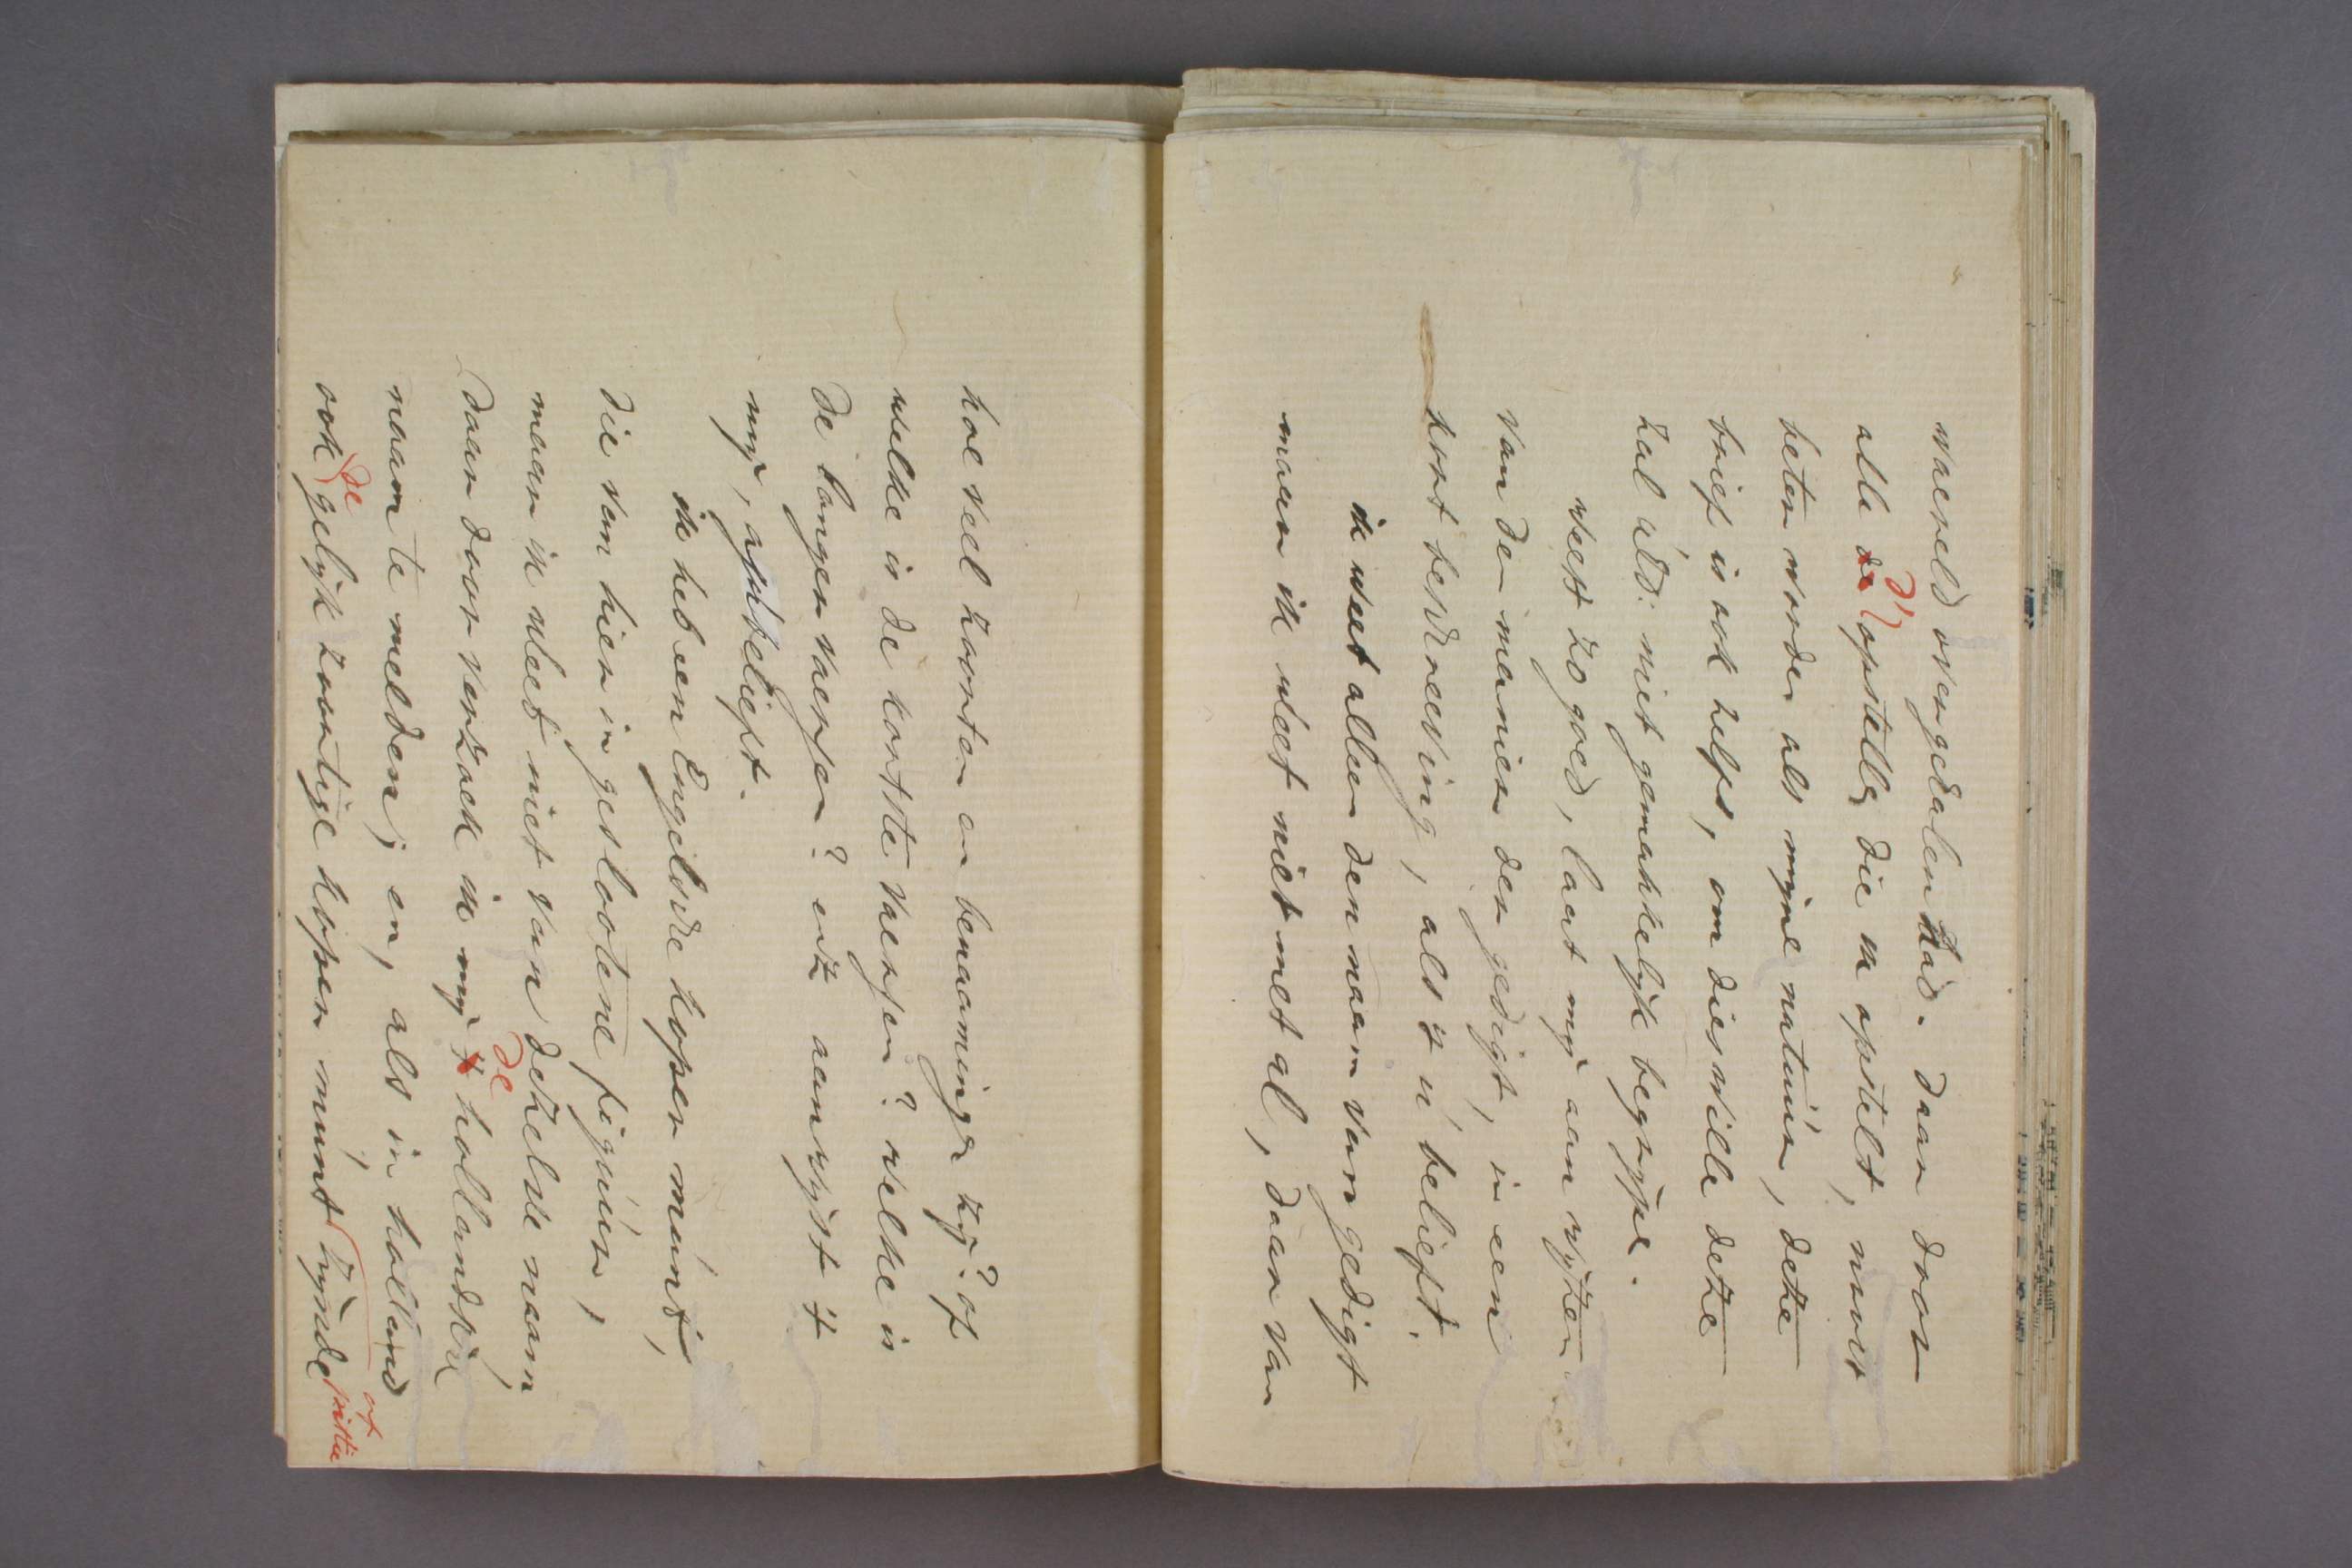 waereld overgedalen had. daar door
alle de d' opstelle die ik opstelt, moet
beter worden als myne natuúr, deze
brief is ook zelfs, om dies wille deze
zal úEd: niet gemakkelyk begrype.
weest zo goed, laat my aan wyzen
van der manier der gedigt, in een
kort beschreeving, als 't ú belieft.
ik weet alleen den naam van gedigt
maar ik weet niet met al, daar van
hoe veel zoorten en benaaminge zy? of
welke is de kortste vaersen? welke is
de langer vaersen? enz aanwyst 't
my, asjúbelieft.
ik heb een Engelsche koper múnt,
die van hier in geslootene figuúr,
maar ik weet niet van dezelve naam
daar voor verzoek ik my 't de hollandsch
naam te melden; en, als in holland
ook de gelyk zoortige koper múnt zynde
of